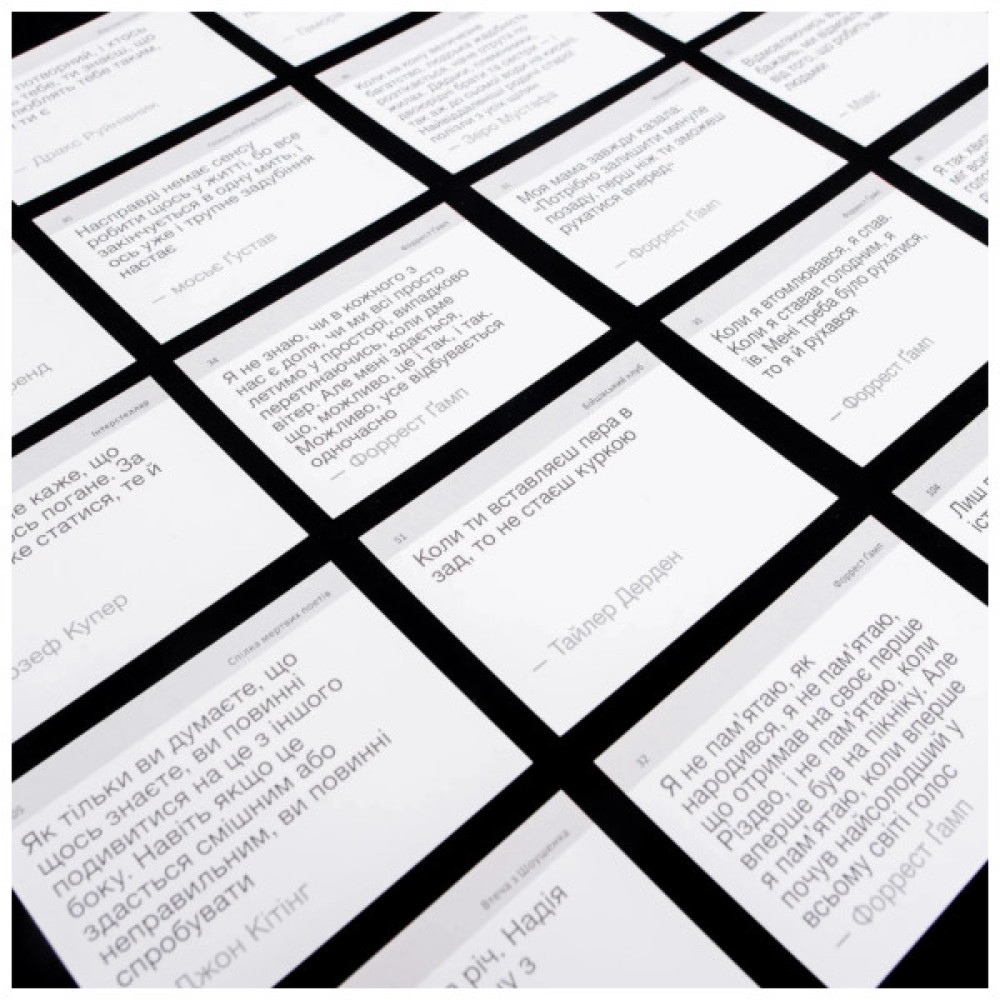 потворний, і хтось
тебе, ти знаєш, що
люблять тебе таким,
ти є
— Дракс Руйнівник
Гамора
Коли на кону величезне
багатство, людська жадібність
розтікається, наче отрута по
жилах. Дядьки, племінники,
двоюрідні брати та сестри — і
так аж до сьомої води на киселі.
Найвіддаленіші родичі старої
полізли з усіх щілин
— Зеро Мустафа
Відмовляючись від
бажань, ми відмовляємося
від того, що робить нас
людьми
— Макс
45
Насправді немає сенсу
робити щось у житті, бо все
закінчується в одну мить, і
ось уже і трупне задубіння
настає
— мосьє Ґустав
Форрест Ґамп
Моя мама завжди казала:
«Потрібно залишити минуле
позаду, перш ніж ти зможеш
рухатися вперед»
— Форрест Ґамп
Я так
міг
Форрест Ґамп
34
Я не знаю, чи в кожного з
нас є доля, чи ми всі просто
летимо у просторі, випадково
перетинаючись, коли дме
вітер. Але мені здається,
що, можливо, це і так, і так.
Можливо, усе відбувається
одночасно
— Форрест Ґамп
Форрест Ґамп
35
Коли я втомлювався, я спав.
Коли я ставав голодним, я
їв. Мені треба було рухатися,
то я й рухався
— Форрест Ґамп
Інтерстеллар
не каже, що
щось погане. За
же статися, те й
Джозеф Купер
Бійцівський клуб
51
Коли ти вставляєш пера в
зад, то не стаєш куркою
— Тайлер Дерден
104
Лиш
Спілка мертвих поетів
Як тільки ви думаєте, що
щось знаєте, ви повинні
подивитися на це з іншого
боку. Навіть якщо це
здасться смішним або
неправильним, ви повинні
спробувати
Джон Кітінг
Форрест Ґамп
32
Я не пам'ятаю, як
народився, я не пам'ятаю,
що отримав на своє перше
Різдво, і не пам'ятаю, коли
вперше був на пікніку. Але
я пам'ятаю, коли вперше
почув найсолодший у
всьому світі голос
— Форрест Ґамп
Втеча з Шоушенка
річ. Надія
у з